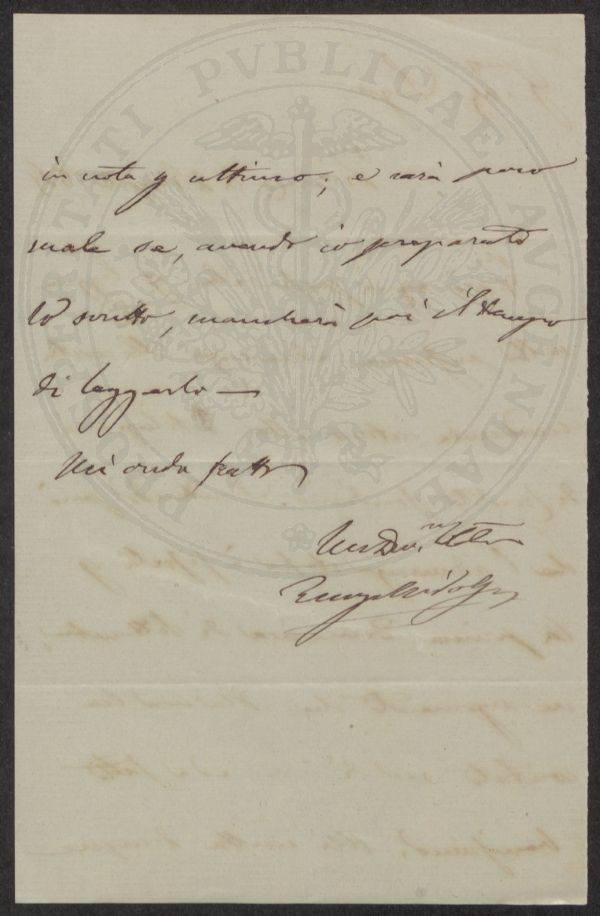 PROSPERITATI PVBLICAE AVGENDAE
in nota p ultimo; e sarà poco
male se, avendo io preparato
lo scritto, mancherà poi il tempo
di leggerlo —
Mi creda
Dev.
Ridolfi